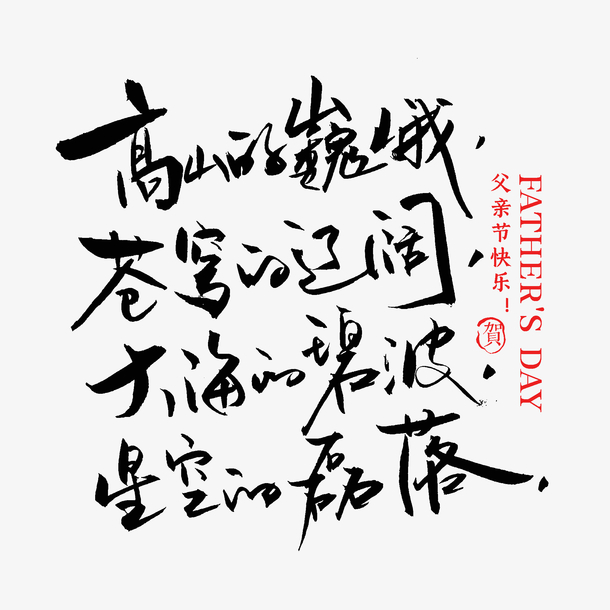 高山的巍峨，
苍穹的辽阔，
大海的碧波，
星空的磊落，
父亲节快乐！
賀
FATHER'S DAY